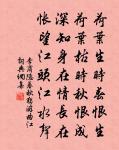 荷葉生時春恨生
荷葉枯時秋恨成
深知身在情長在
悵望江頭江水聲
李商隱暮秋獨遊曲江
詞典網集